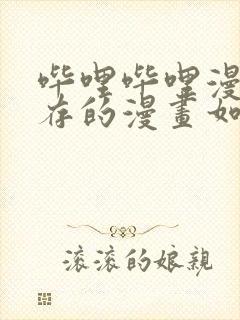 哔哩哔哩漫
存的漫畫如
滚滚的娘親